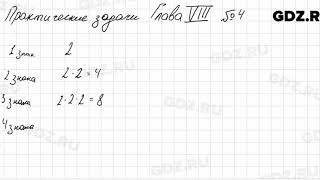 Практические задачи Глава VIII №4
GDZ.RU
1 знак 2
2 знака 2·2=4
3 знака 2·2·2=8
4 знака